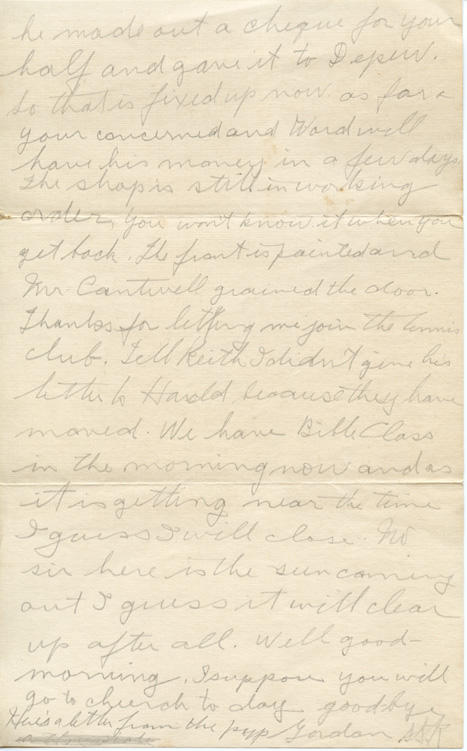 he made out a cheque for your
half and gave it to Depew.
So that is fixed up now as far a
your concerned and Ward will
have his money in a few days
The shop is still in working
order, you won't know it when you
get back. The front is painted and
Mr Cantwell grained the door.
Thanks for letting me join the tennis
club. Tell Keith I didn't give his
letter to Harold because they have
moved. We have Bible Class
in the morning now and as
it is getting near the time
I guess I will close. No
sir here is the sun coming
out I guess it will clear
up after all. Well good-
morning, I suppose you will
go to church to day goodbye
Here's a letter from the pup Gordon